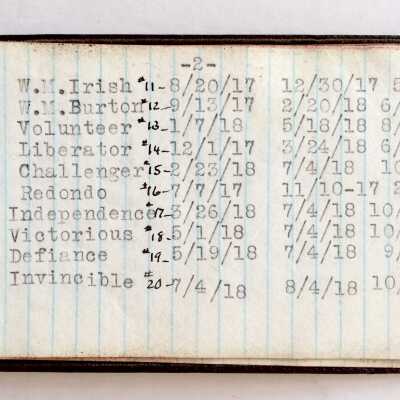 -2-
W.M.Irish #11- 8/20/17 12/30/17 5
W.M.Burton #12- 9/13/17 2/20/18 6/
Volunteer #13- 1/7/18 5/18/18 8/
Liberator #14- 12/1/17 3/24/18 6/
Challenger #15- 2/23/18 7/4/18 10
Redondo #16- 7/7/17 11/10-17 2
Independence #17- 3/26/18 7/4/18 10/
Victorious #18- 5/1/18 7/4/18 10/
Defiance #19- 5/19/18 7/4/18 9/
Invincible #20- 7/4/18 8/4/18 10/